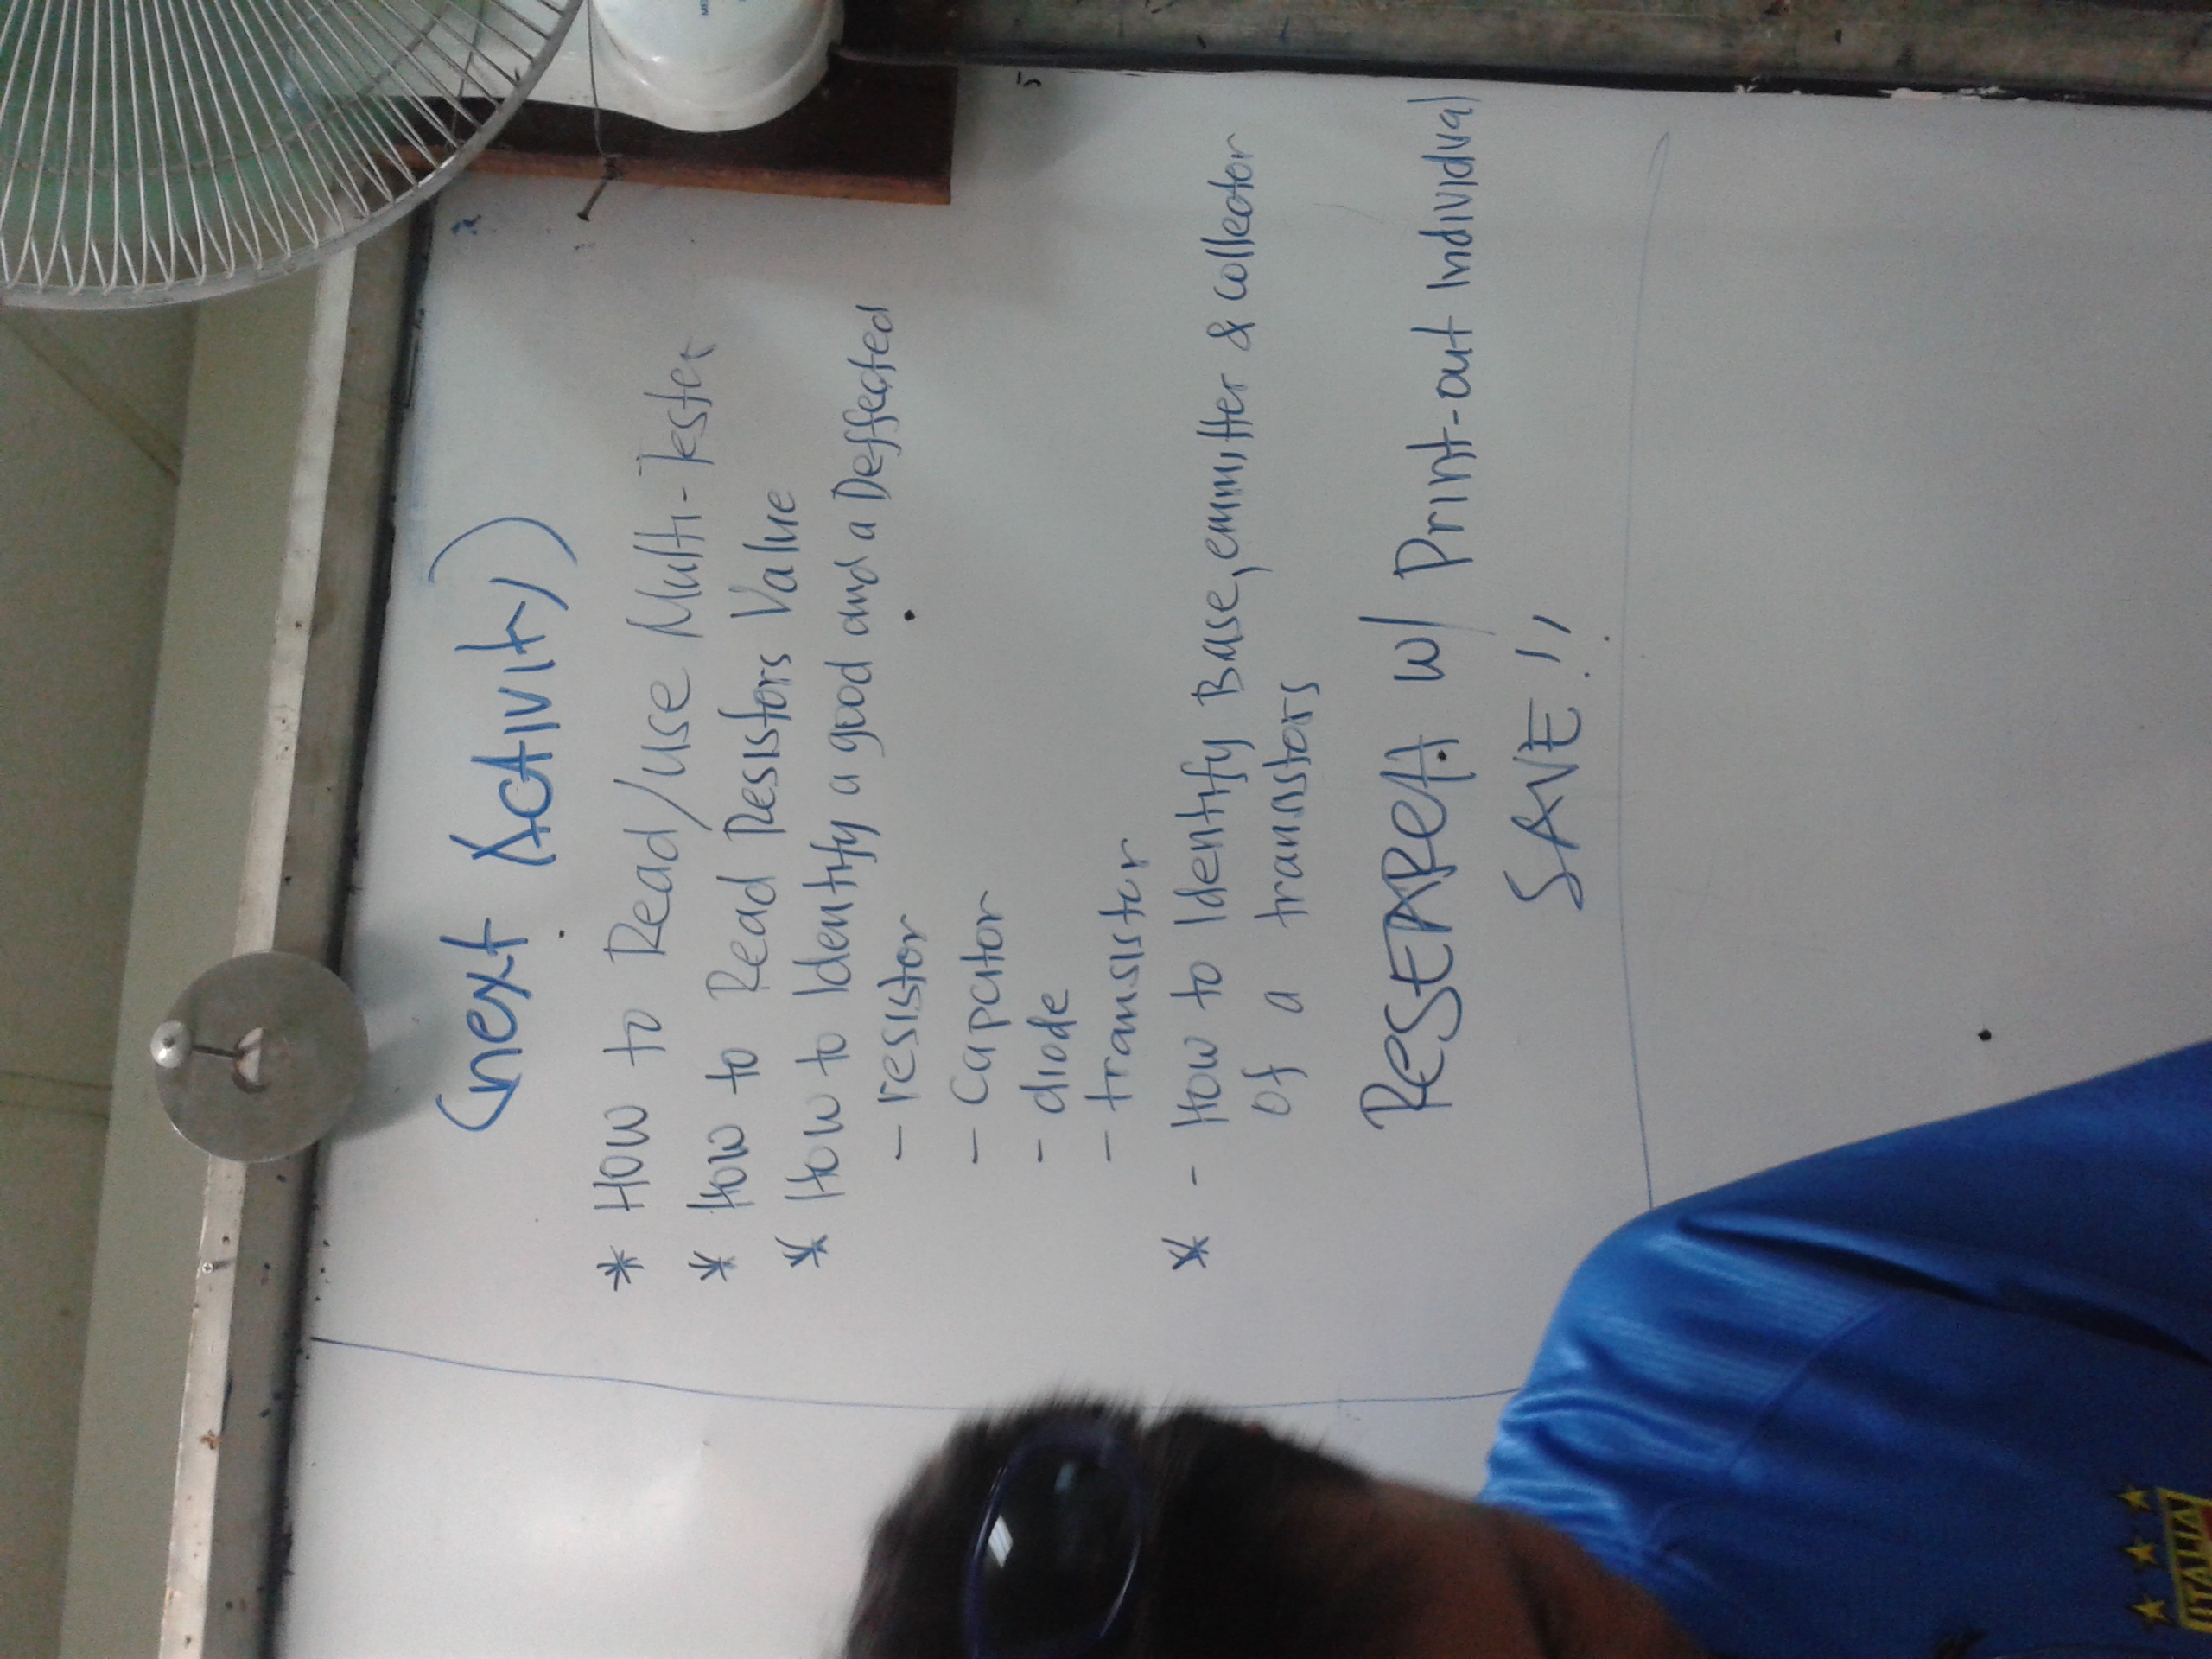 (next Activity)
* How to Read/use Multi-Tester
* How to Read Resistors Value
* How to Identify a good and a Deffected
- resistor
- Capaitor
- diode
- transistor
* - How to Identify Base, emmitter & collector
of a trannstors
RESEARCH w/ Print-out Individual
SAVE!!
ITALIA